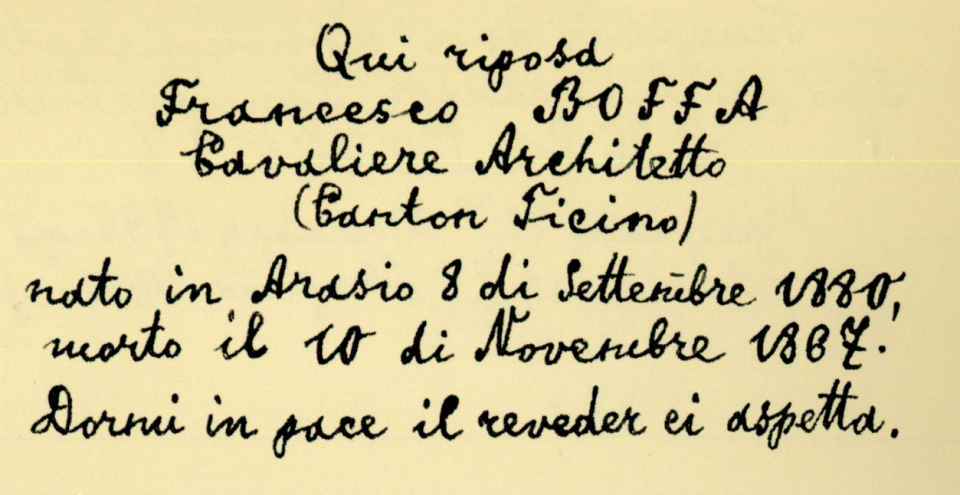 Qui riposa
Francesco BOFFA
Cavaliere Architetto
(Canton Ticino)
nato in Arasio 8 di Settembre 1880,
morto il 10 di Novembre 1867.
Dormi in pace il reveder ci aspetta.